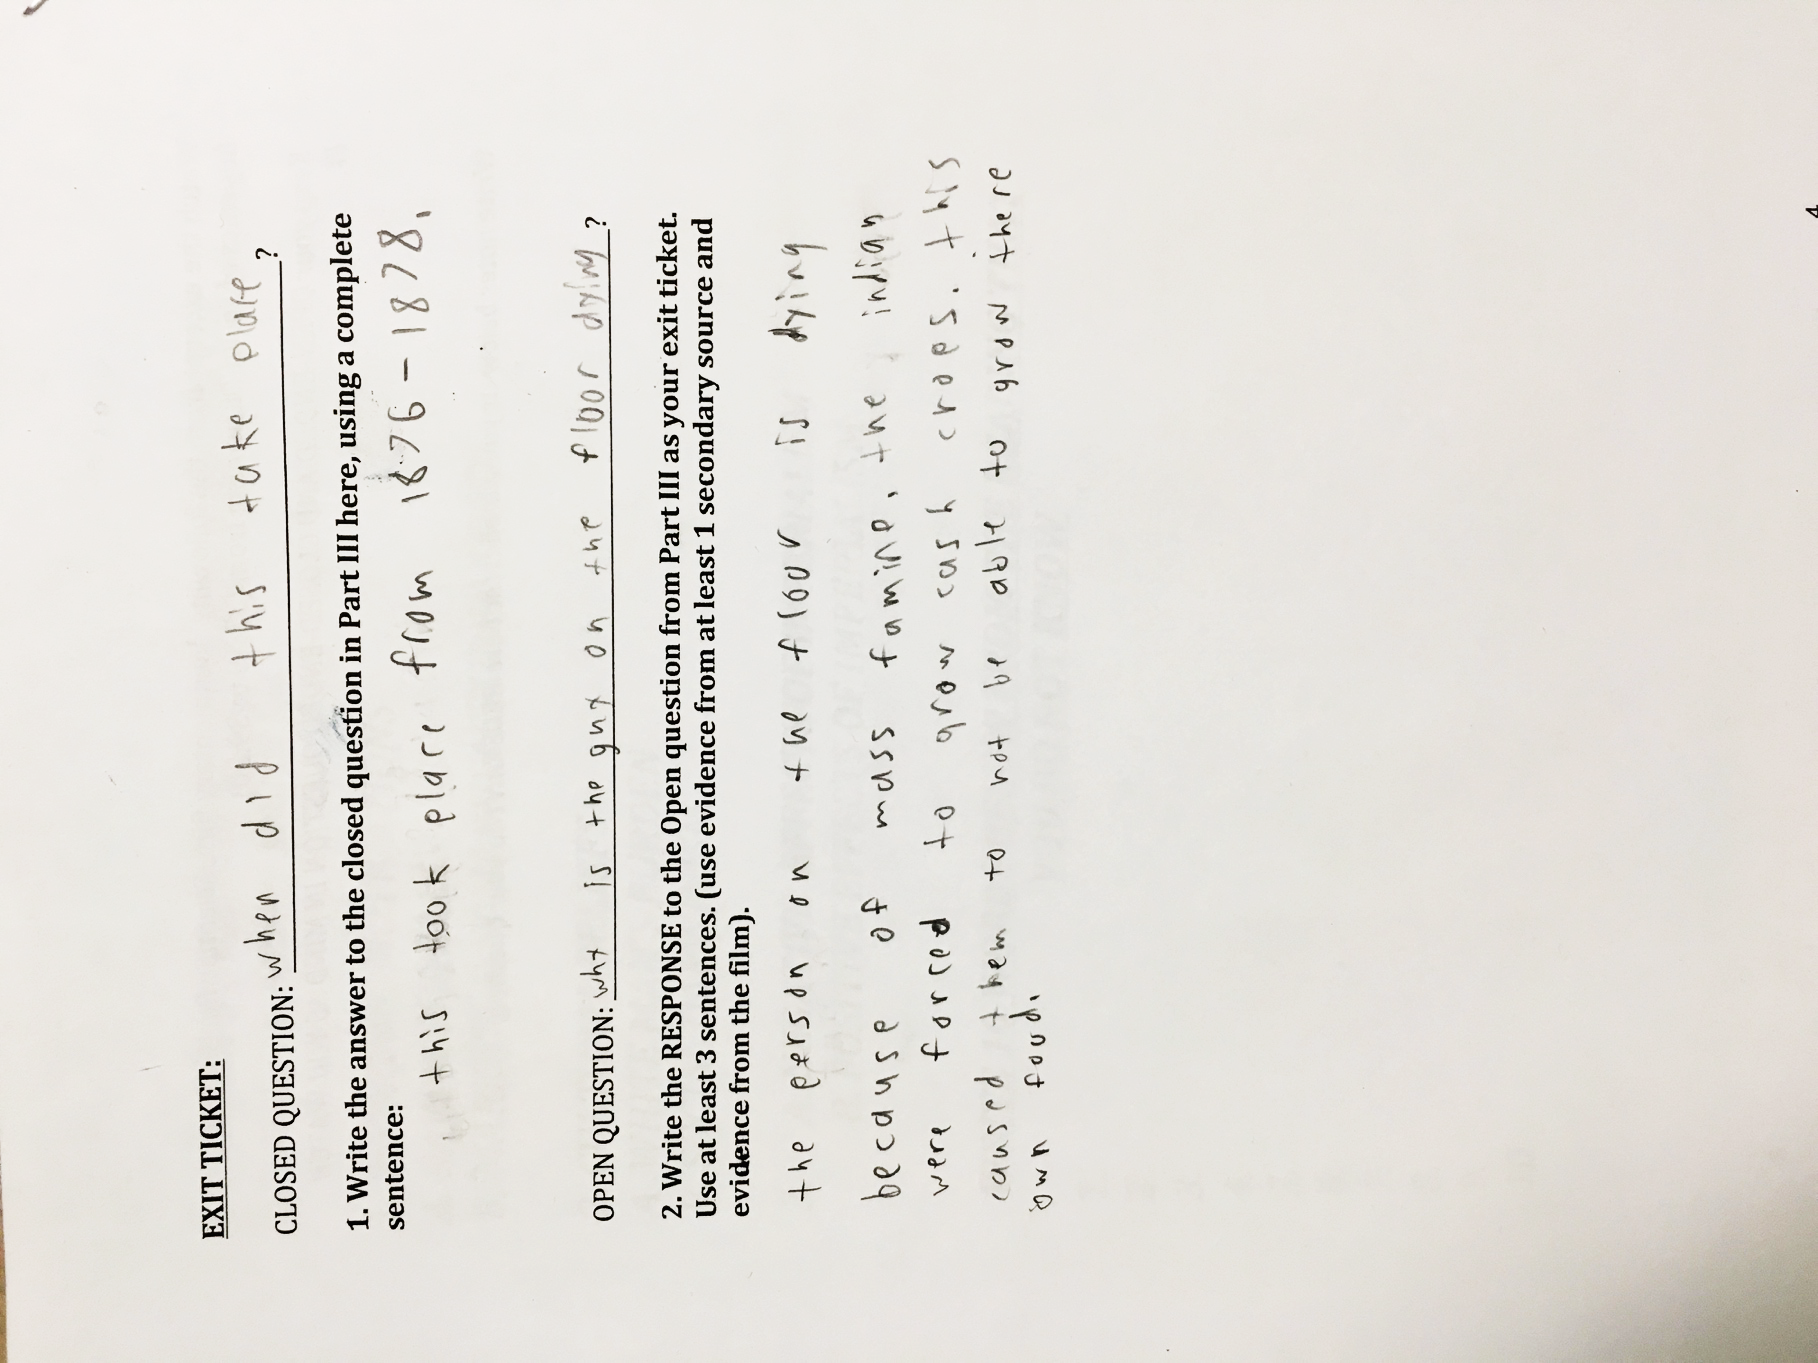 EXIT TICKET:
CLOSED QUESTION: when did this take place ?
1. Write the answer to the closed question in Part III here, using a complete
sentence:
this took place from 1876-1878.
OPEN QUESTION: why is the guy on the floor dying ?
2. Write the RESPONSE to the Open question from Part III as your exit ticket.
Use at least 3 sentences. (use evidence from at least 1 secondary source and
evidence from the film).
the person on the floor is dying
because of mass famine. the indian
were forced to grow cash crops. this
caused them to not be able to grow there
own food.
4